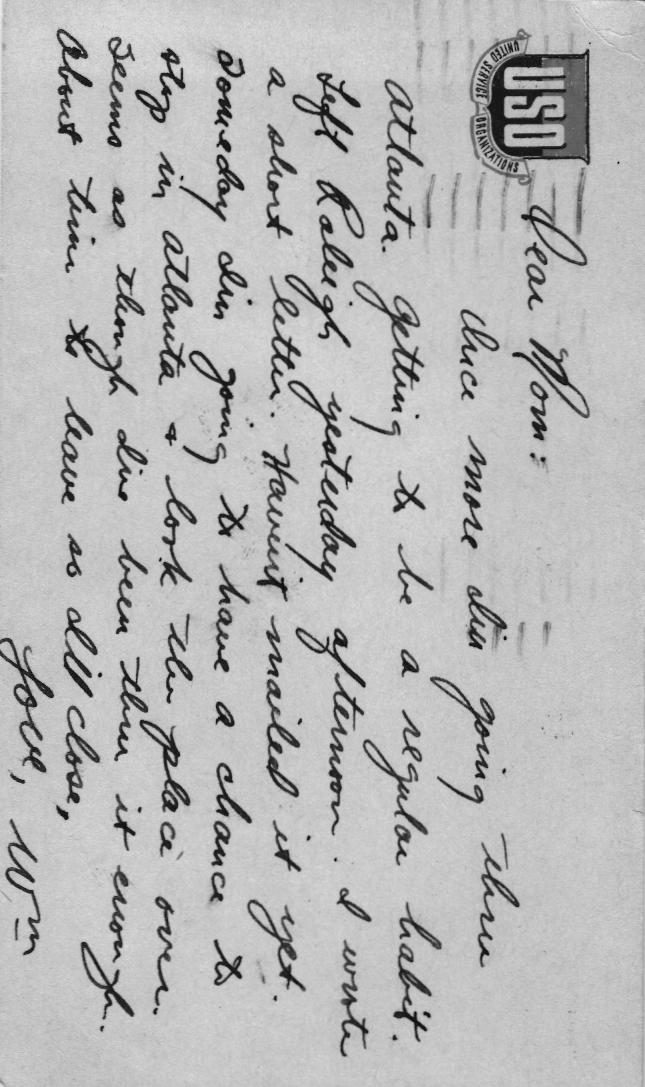 USO
UNITED SERVICE ORGANIZATIONS
Dear Mom:
Once more I'm going thru
Atlanta. Getting to be a regular habit.
Left Raleigh yesterday afternoon. I wrote
a short letter. Havint mailed it yet.
Someday I'm going to have a chance to
stop in Atlanta & look the place over.
Seems as though I've been thru it enough.
About time to leave so I'll close,
Love, Wm